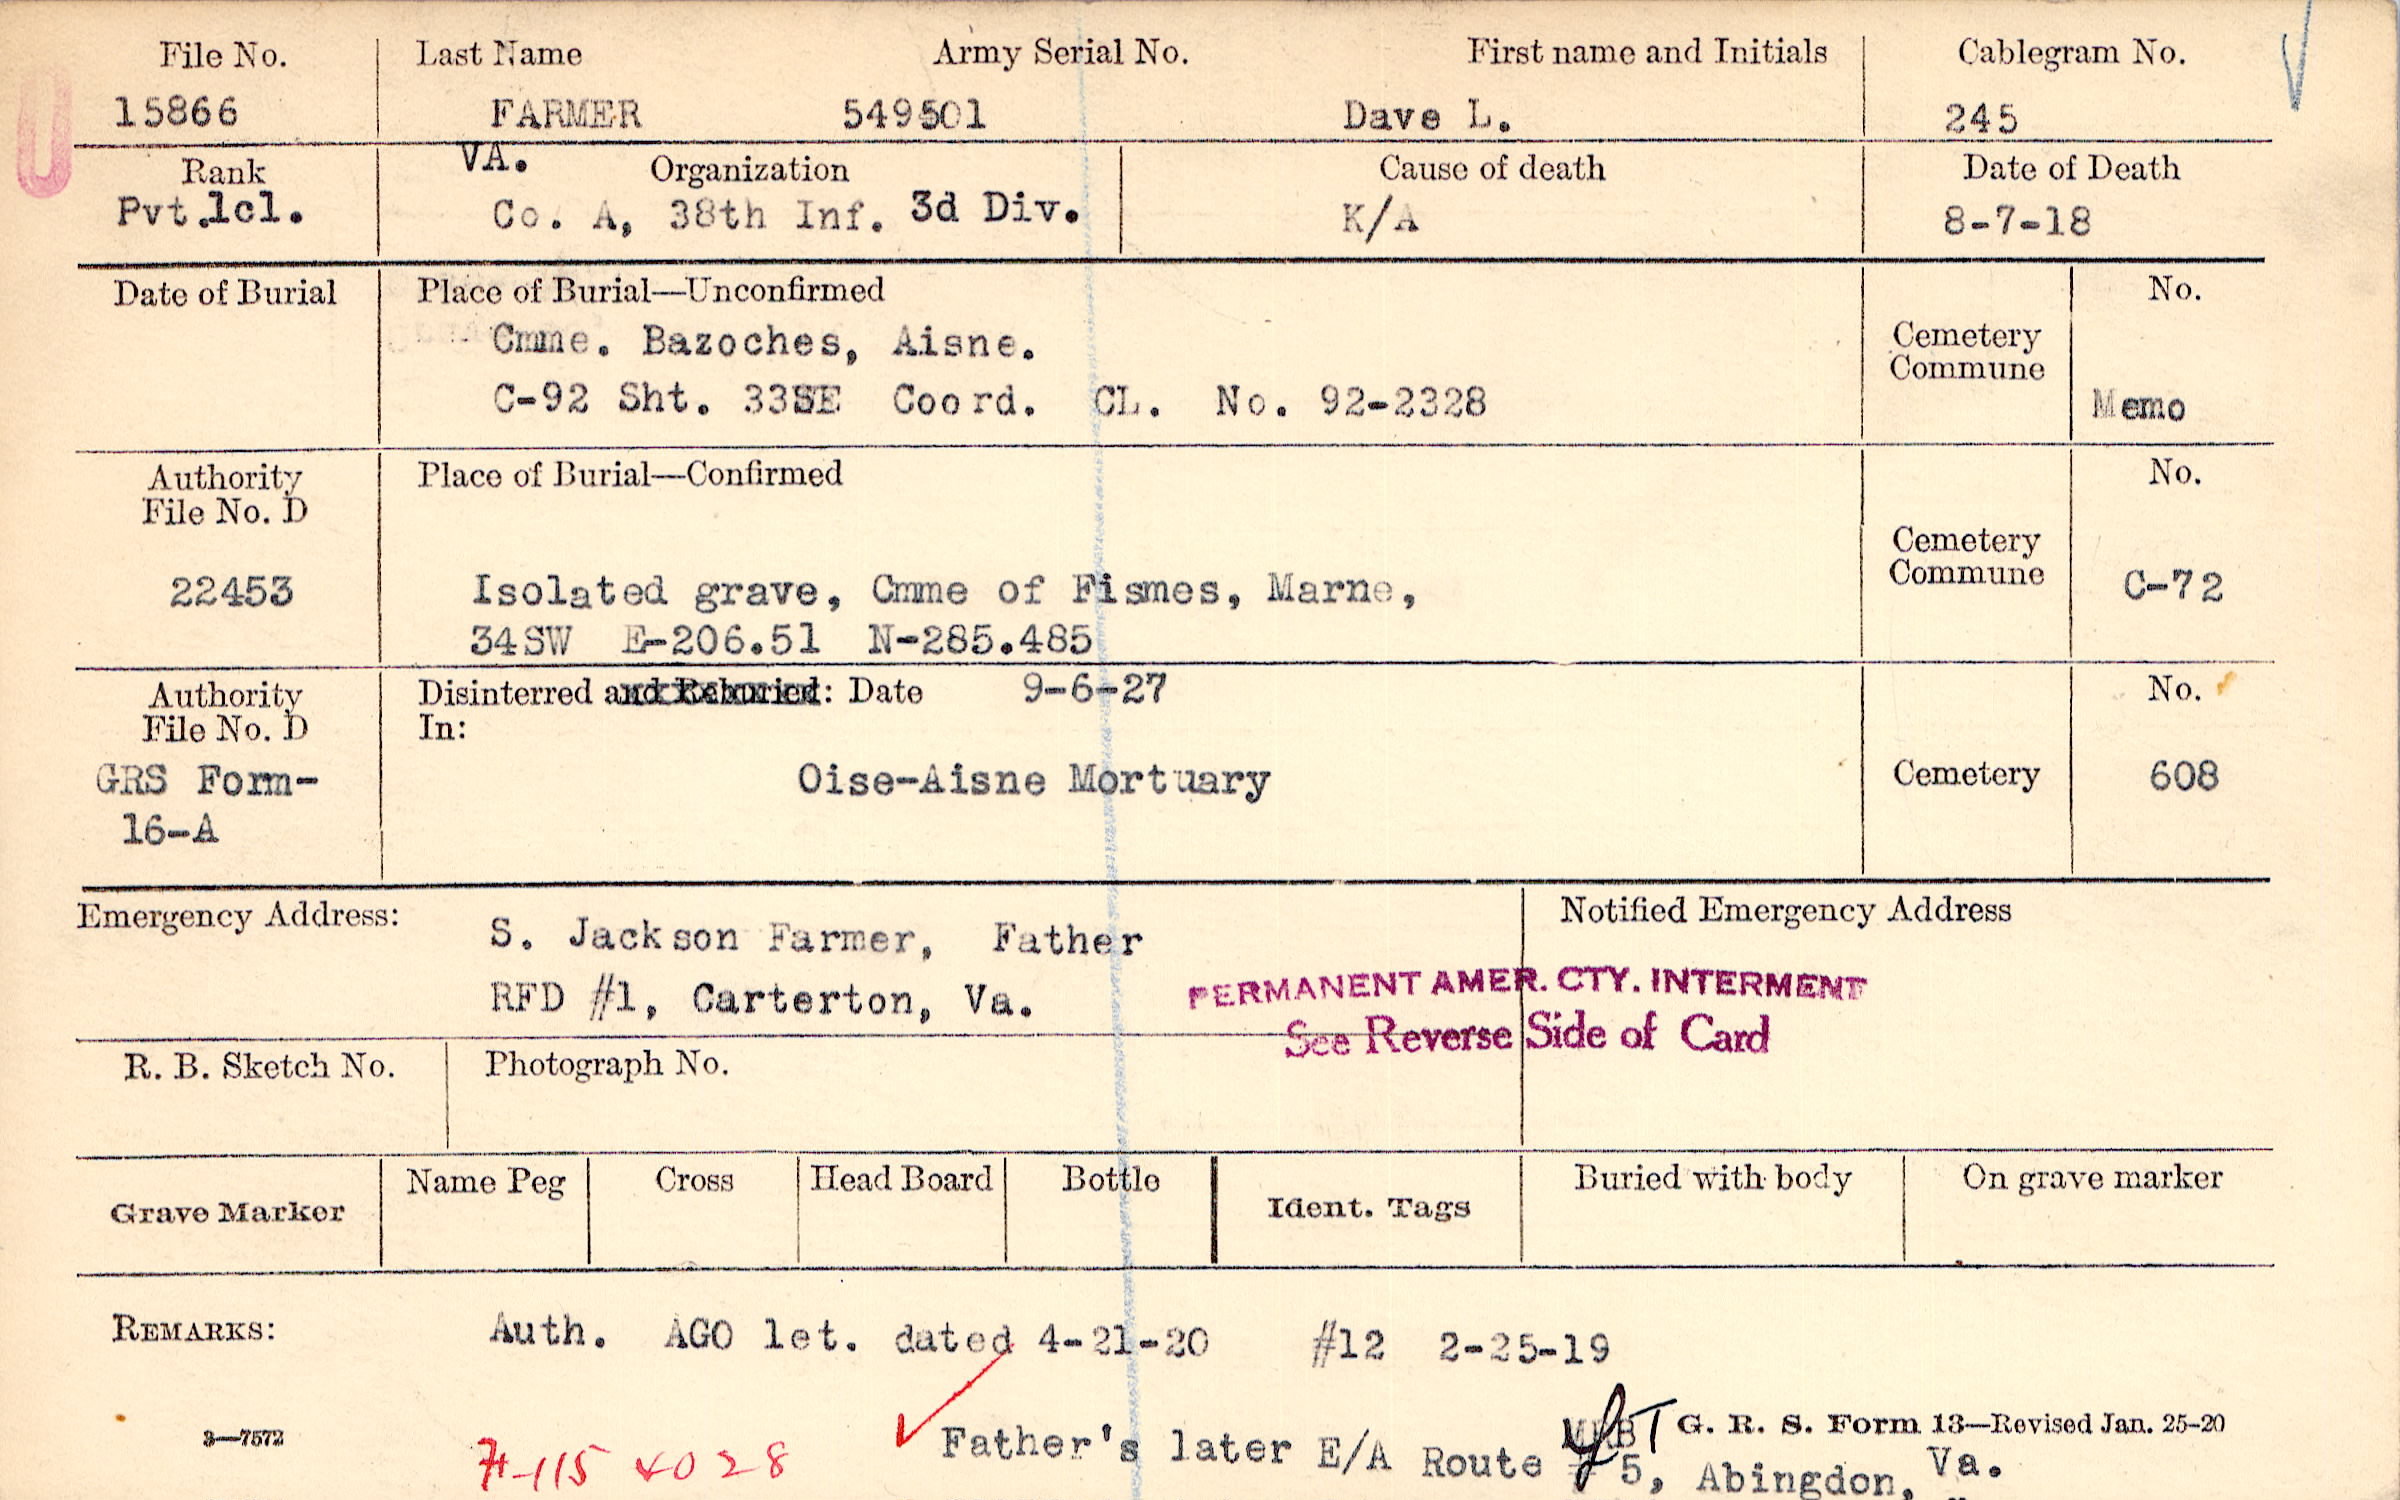 File No. Last Name Army Serial No. First name and Initials Cablegram No.
15866 FARMER 549501 Dave L. 245
Rank VA. Organization Cause of death Date of Death
Pvt.1cl. Co. A, 38th Inf. 3d Div. K/A 8-7-18
Date of Burial Place of Burial—Unconfirmed No.
Cmme. Bazoches, Aisne. Cemetery
Commune
C-92 Sht. 33SE Coord. CL. No. 92-2328 Memo
Authority Place of Burial—Confirmed No.
File No. D
Cemetery
Commune
22453 Isolated grave, Cmme of Fismes, Marne, C-72
34SW E-206.51 N-285.485
Authority Disinterred and Reburied: Date 9-6-27 No.
File No. D In:
GRS Form- Oise-Aisne Mortuary Cemetery 608
16-A
Emergency Address: S. Jackson Farmer, Father Notified Emergency Address
RFD #1, Carterton, Va.
PERMANENT AMER. CTY. INTERMENT
See Reverse Side of Card
R. B. Sketch No. Photograph No.
Grave Marker Name Peg Cross Head Board Bottle Ident. Tags Buried with body On grave marker
REMARKS: Auth. AGO let. dated 4-21-20 #12 2-25-19
3—7572 G. R. S. Form 13—Revised Jan. 25-20
Father's later E/A Route # 5, Abingdon, Va.
4028